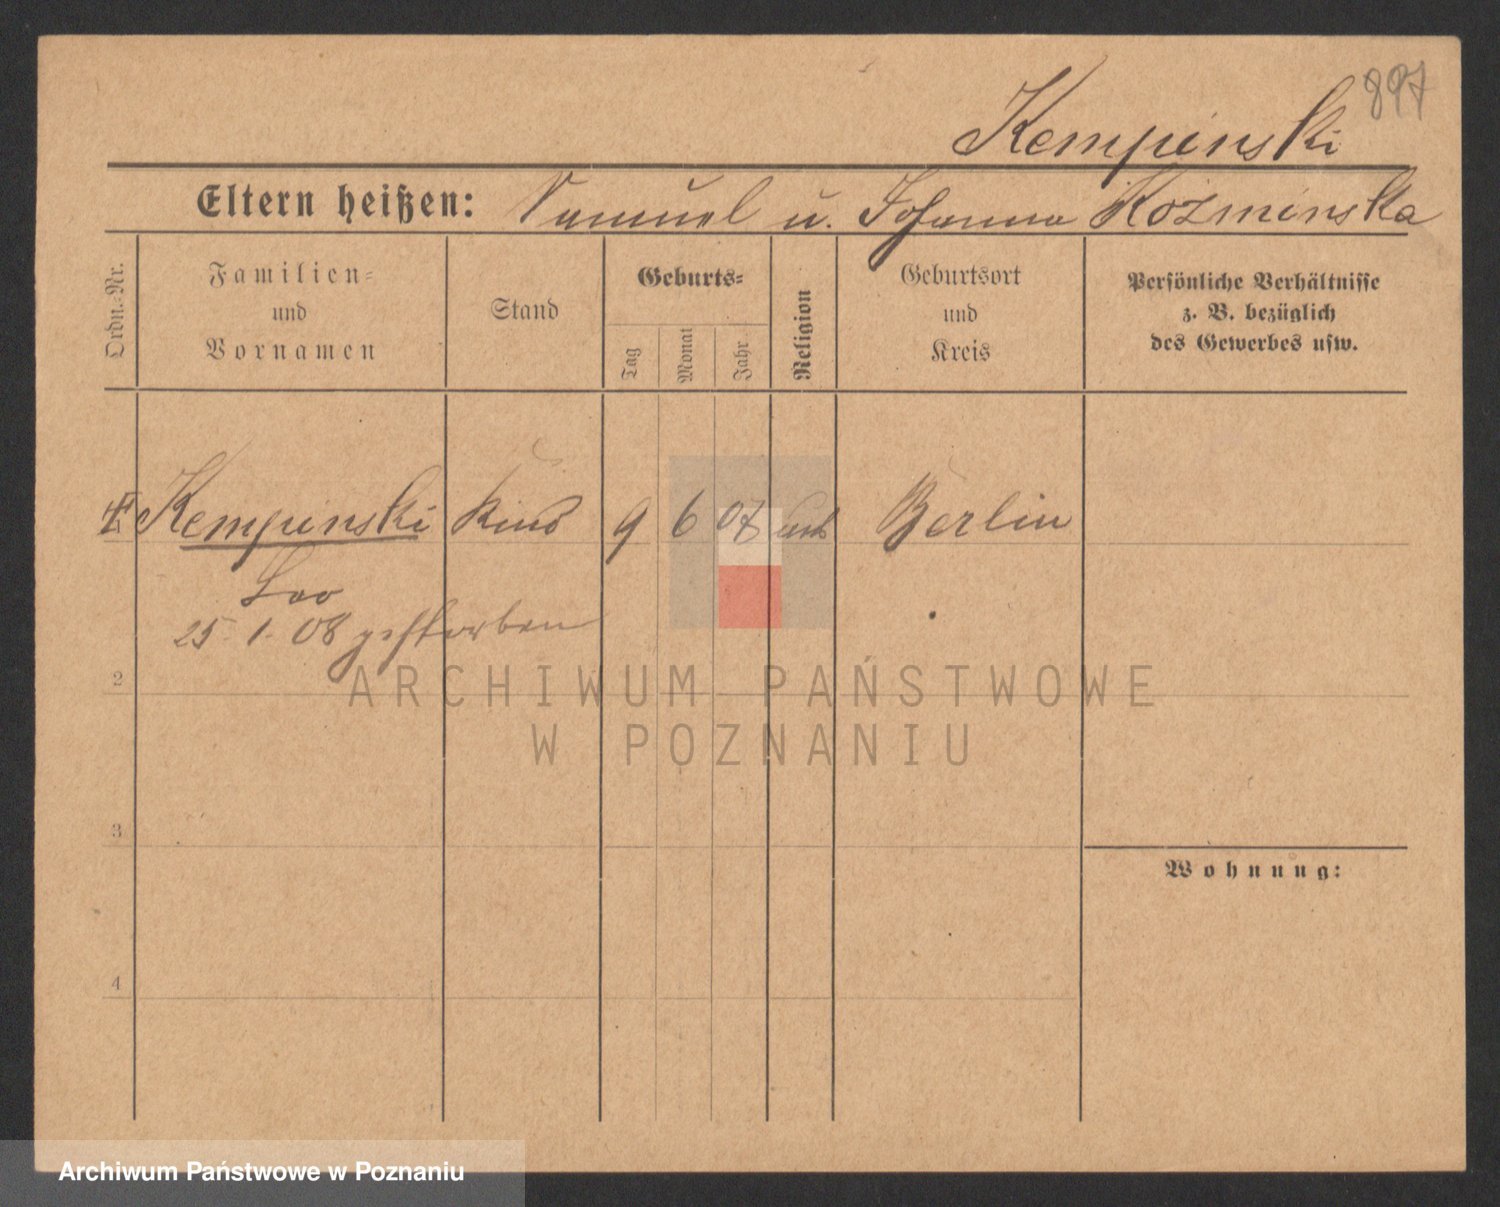 897
Kempinski
Eltern heißen: Samuel u. Johanna Kozminska
Ordn.-Nr.
Familien-
und
Vornamen
Stand
Geburts-
Tag
Monat
Jahr
Religion
Geburtsort
und
Kreis
Persönliche Verhältnisse
z. B. bezüglich
des Gewerbes usw.
Kempinski Kind 9 6 07 Berlin
Leo
25. 1. 08 gestorben
2
ARCHIWUM PAŃSTWOWE
W POZNANIU
3
Wohnung:
4
Archiwum Państwowe w Poznaniu